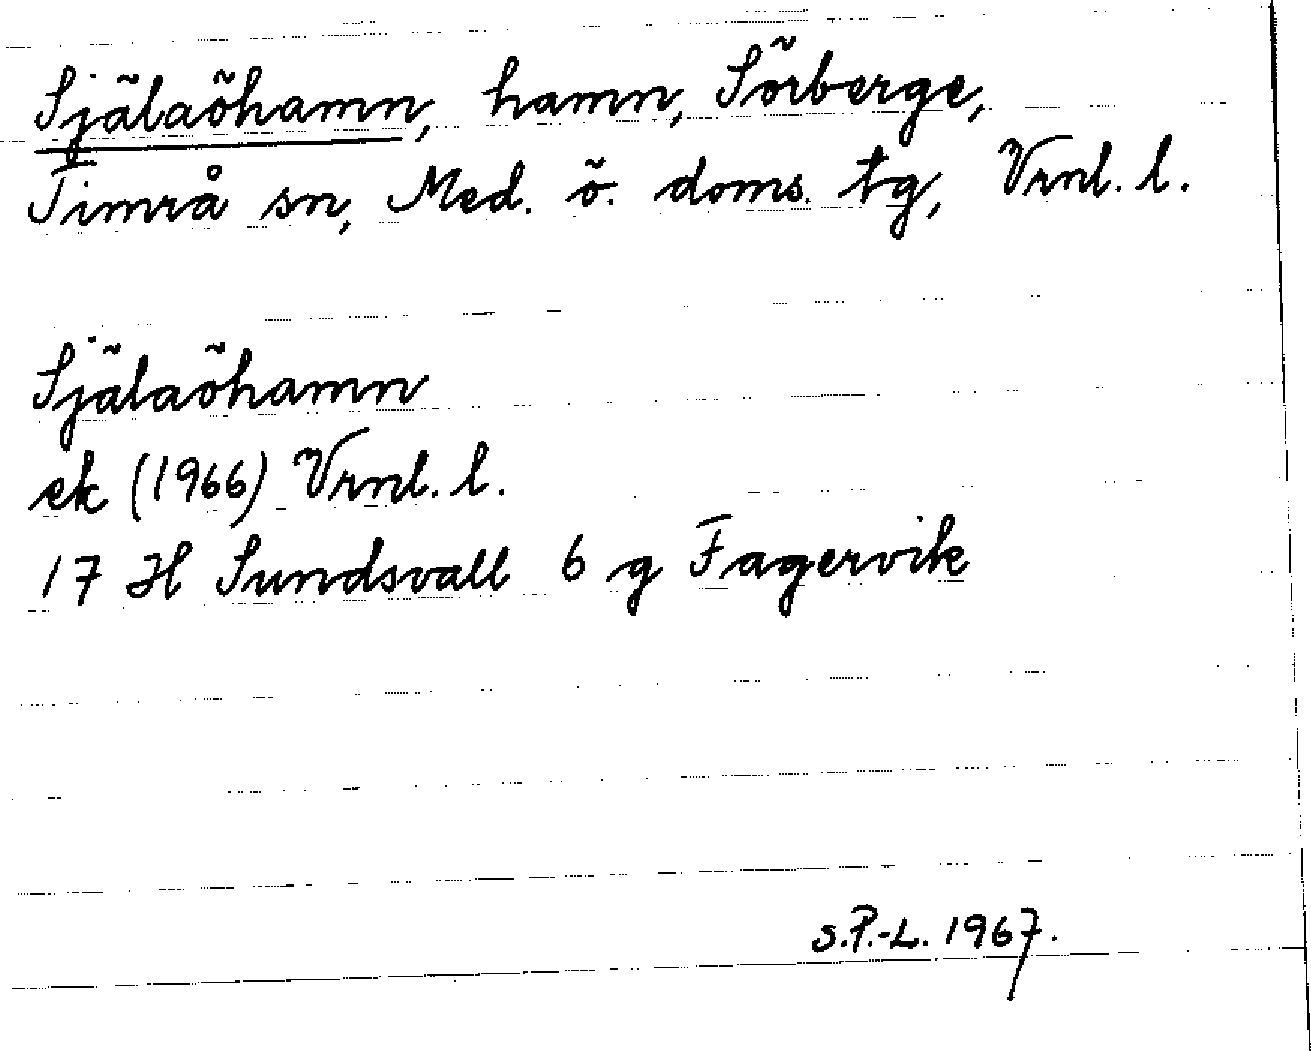 Själaöhamn, hamn, Sörberge,
Timrå sn, Med. ö. doms. tg, Vrnl. l.
Själaöhamn
ek (1966) Vrnl. l.
17 H Sundsvall 6 g Fagervik
S.P.-L. 1967.